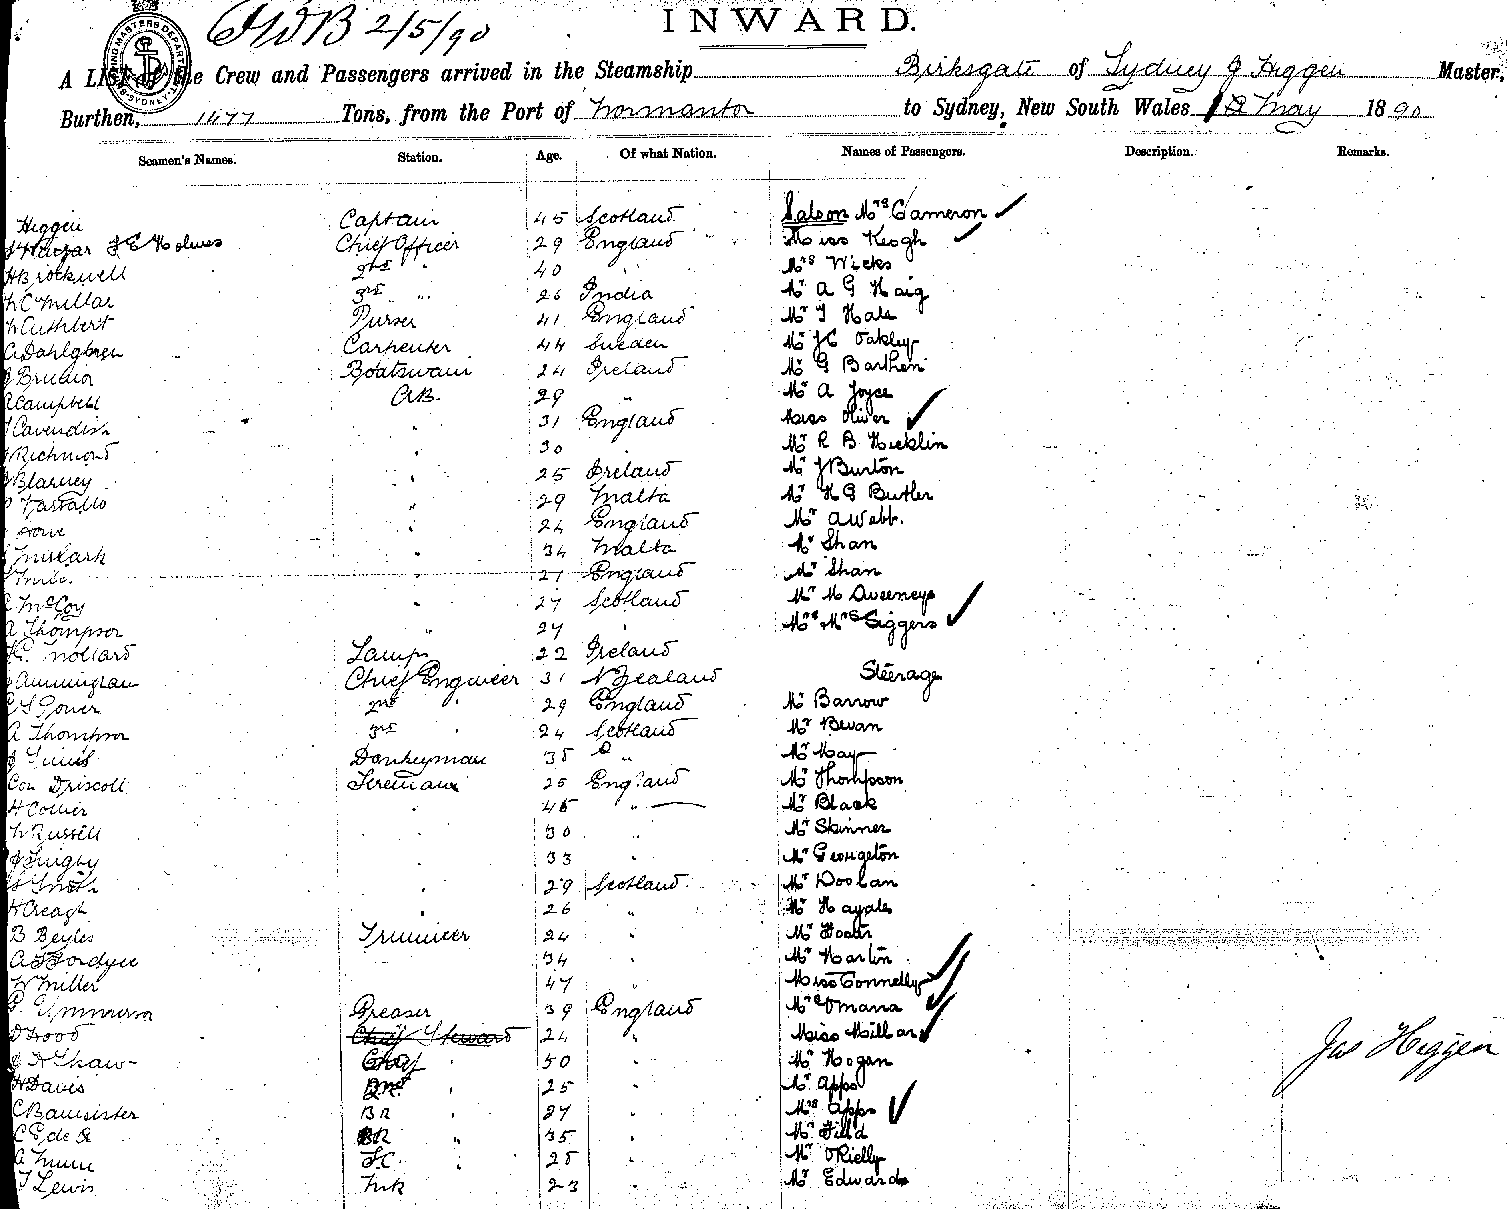 2/5/90
INWARD.
A LIST of the Crew and Passengers arrived in the Steamship Birksgate of Sydney J Higgen Master,
Burthen, 1477 Tons, from the Port of Normanton to Sydney, New South Wales 12 May 1890
Seamen's Names. Station. Age. Of what Nation. Names of Passengers. Description. Remarks.
Higgen Captain 45 Scotland Saloon Mrs Cameron
J E Holmes Chief Officer 29 England Miss Keogh
H Brockwell 2nd " 40 " Mrs Wicks
C Millar 3rd " 26 India Mr A G Haig
W Cuthbert Purser 41 England Mr T Hale
A Dahlgreen Carpenter 44 Sweden Mr J C Oakley
Boatswain 24 Ireland Mr G Barthen
A Campbell A.B. 29 " Mr A Joyce
T Cavendish " 31 England Miss Oliver
J Richmond " 30 Mr R B Hicklin
J Blarney " 25 Ireland Mr J Burton
" 29 Malta Mr H G Butler
" 24 England Mr A Webb.
" 34 Malta Mr Shan
" 21 England Mr Shan
C McCoy " 27 Scotland Mr M Sweeneys
A Thompson " 27 " Mr & Mrs Siggers
Lamps 22 Ireland
Chief Engineer 31 N Zealand Steerage
C S Gower 2nd " 29 England Mr Barrow
A Thompson 3rd " 24 Scotland Mr Bevan
Donkeyman 38 " Mr May
Con Driscoll Fireman 25 England Mr Thompson
H Collier " 45 " Mr Black
W Russell " 30 " Mr Skinner
" 33 " Mr Georgeton
Smith " 29 Scotland Mr Doolan
H Creagh " 26 " Mr Hayales
B Beyles Trimmer 24 "
A Fordyce 34 " Mr Martin
W Miller 47 " Miss Connelly
Greaser 39 England Mrs Omara
D Wood Chief Steward 24 " Miss Millar
J H Shaw Chief " 50 " Mr Hogan
H Davis 2nd 25 " Mr Apps
C Bannister BR " 27 " Mrs Apps
BR " 35 " Mr Field
F.C. " 28 " Mr O'Rielly
T Lewis 23 " Mr Edwards
Jas Higgen